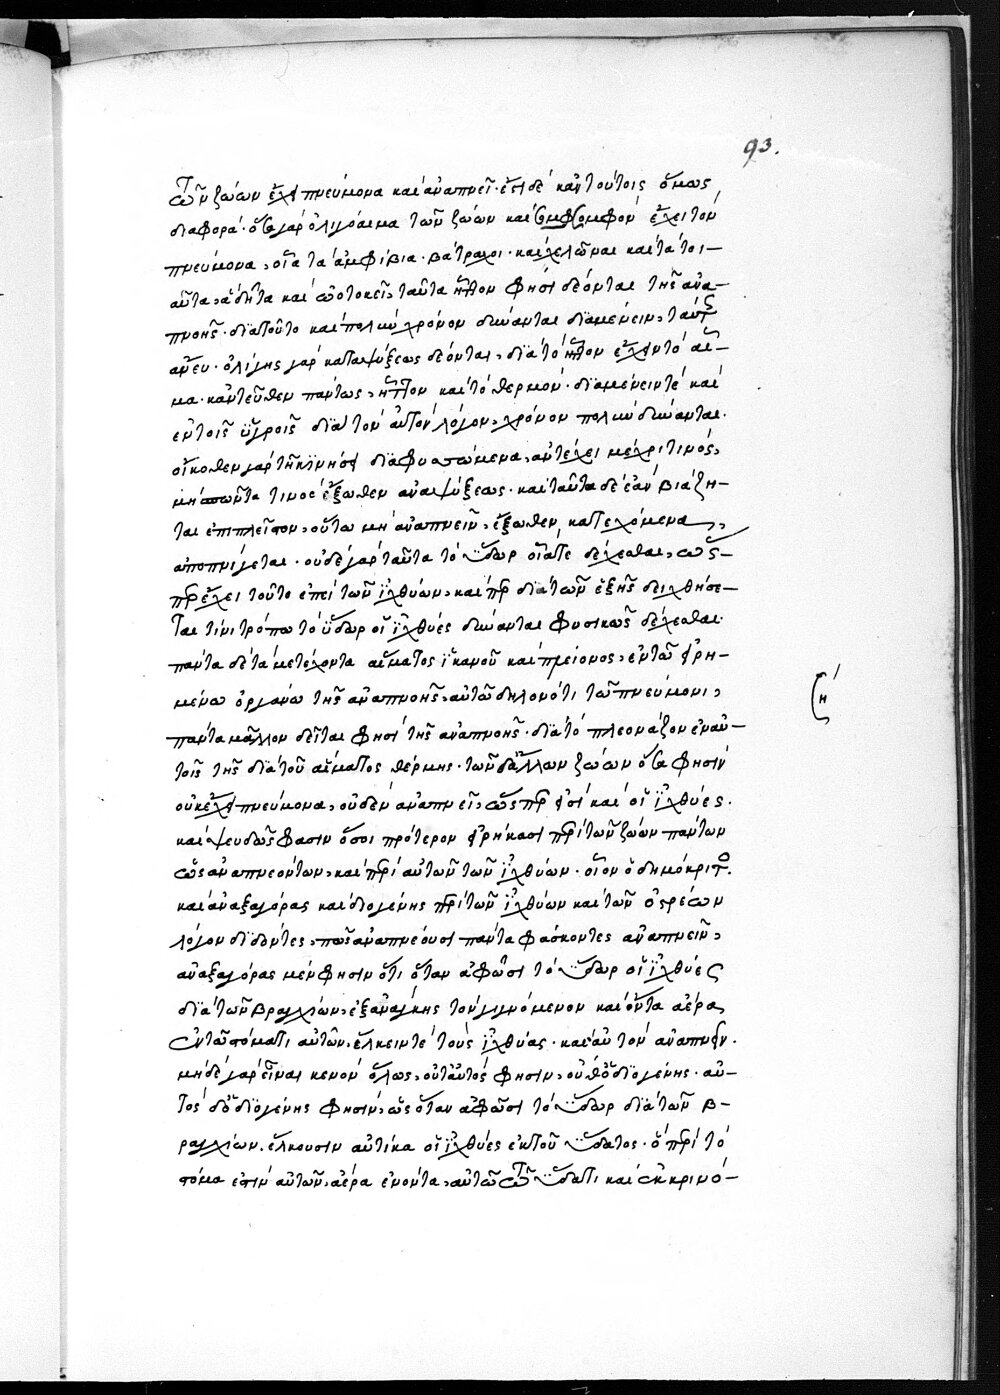 93.
τῶν ζώων ἔχει πνεύμονα καὶ ἀναπνεῖ· ἔστι δὲ κἀν τούτοις ὅμως
διαφορά· ὅσα γὰρ ὀλιγόαιμα τῶν ζώων καὶ σομφὸν ἔχει τὸν
πνεύμονα, οἷα τὰ ἀμφίβια· βάτραχοι· καὶ χελῶναι καὶ τὰ τοι-
αῦτα, καὶ ᾠοτοκεῖ, ταῦτα ἧττον φησὶ δέονται τῆς ἀνα-
πνοῆς· διὰ τοῦτο καὶ πολὺν χρόνον δύνανται διαμένειν, ταύτης
ἄνευ· ὀλίγης γὰρ καταψύξεως δέονται, διὰ τὸ ἧττον ἔχειν τὸ αἷ-
μα· κἀντεῦθεν πάντως, ἧττον καὶ τὸ θερμόν· διαμένειν τὲ καὶ
ἐν τοῖς ὑγροῖς διὰ τὸν αὐτὸν λόγον, χρόνον πολὺν δύνανται·
οἴκοθεν γὰρ τῇ κινήσει ἀντέχει μέχρι τινός,
τινος ἔξωθεν ἀναψύξεως· καὶ ταῦτα δὲ ἐὰν βιάζη-
ται ἐπιπλεῖστον, οὕτω μὴ ἀναπνεῖν, ἔξωθεν κατεχόμενα,
ἀποπνίγεται· οὐδὲ γὰρ ταῦτα τὸ ὕδωρ οἷά τε δέχεσθαι, ὥσ-
περ ἔχει τοῦτο ἐπὶ τῶν ἰχθύων, καίπερ διὰ τῶν ἑξῆς δειχθήσε-
ται τίνι τρόπω τὸ ὕδωρ οἱ ἰχθύες δύνανται φυσικῶς δέχεσθαι·
πάντα δὲ τὰ μετέχοντα αἵματος ἱκανοῦ καὶ πλείονος, ἐν τῶ εἰρη-
μένω ὀργάνω τῆς ἀναπνοῆς, αὐτῶ δηλονότι τῶ πνεύμονι,
πάντα μᾶλλον δεῖται φησὶ τῆς ἀναπνοῆς· διὰ τὸ πλεονάζον ἐν αὐ-
τοῖς τῆς διὰ τοῦ αἵματος θέρμης· τῶν δ' ἄλλων ζώων ὅσα φησὶν
οὐκ ἔχει πνεύμονα, οὐδὲν ἀναπνεῖ, ὥσπερ εἰσὶ καὶ οἱ ἰχθύες·
καὶ ψευδῶς φασιν ὅσοι πρότερον εἰρήκασι περὶ τῶν ζώων πάντων
ὡς ἀναπνεόντων, καὶ περὶ αὐτῶν τῶν ἰχθύων· οἷον ὁ δημόκριτος.
καὶ ἀναξαγόρας καὶ διογένης περὶ τῶν ἰχθύων καὶ τῶν ὀστρέων
λόγον διδόντες, πῶς ἀναπνέουσι πάντα φάσκοντες ἀναπνεῖν,
ἀναξαγόρας μὲν φησιν ὅτι ὅταν ἀφῶσι τὸ ὕδωρ οἱ ἰχθύες
διὰ τῶν βραγχίων, ἐξανάγκης τὸν γινόμενον καὶ ὄντα ἀέρα
ἐν τῶ στόματι αὐτῶν, ἕλκειν τὲ τοὺς ἰχθύας· καὶ αὖ τὸν ἀναπνεῖν·
μὴ δὲ γὰρ εἶναι κενὸν ὅλως, φησιν, διογένης· αὐ-
τὸς δὲ ὁ διογένης φησὶν, ὡς ὅταν ἀφῶσι τὸ ὕδωρ διὰ τῶν β-
ραγχίων, ἕλκουσιν αὐτίκα οἱ ἰχθύες ἐκ τοῦ ὕδατος· ὃ περὶ τὸ
στόμα ἐστὶν αὐτῶν, ἀέρα ἐνόντα, αὐτῶ τῶ ὕδατι καὶ ἐκκρινό-
ή